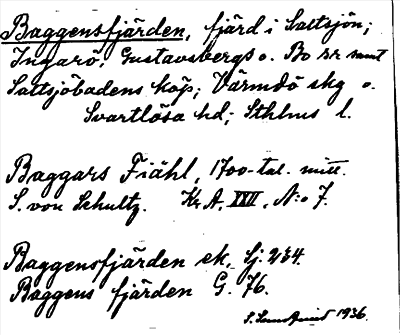 Baggensfjärden, fjärd i Saltsjön;
Ingarö, Gustavsbergs o. Bo srr samt
Saltsjöbadens köp; Värmdö skg o.
Svartlösa hd; Sthlms l.
Baggars Fiähl, 1700-tal. mitt.
S. von Schultz. Kr. A, XXII, N:o 7.
Baggensfjärden ek. Sj. 234.
Baggens fjärden G. 76.
S. 1936.